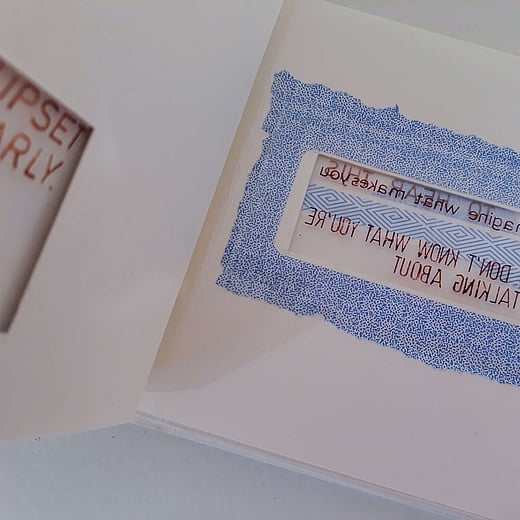 UPSET
ARLY.
HEAR THIS
magine what makes you
DON'T KNOW WHAT YOU'RE
TALKING ABOUT